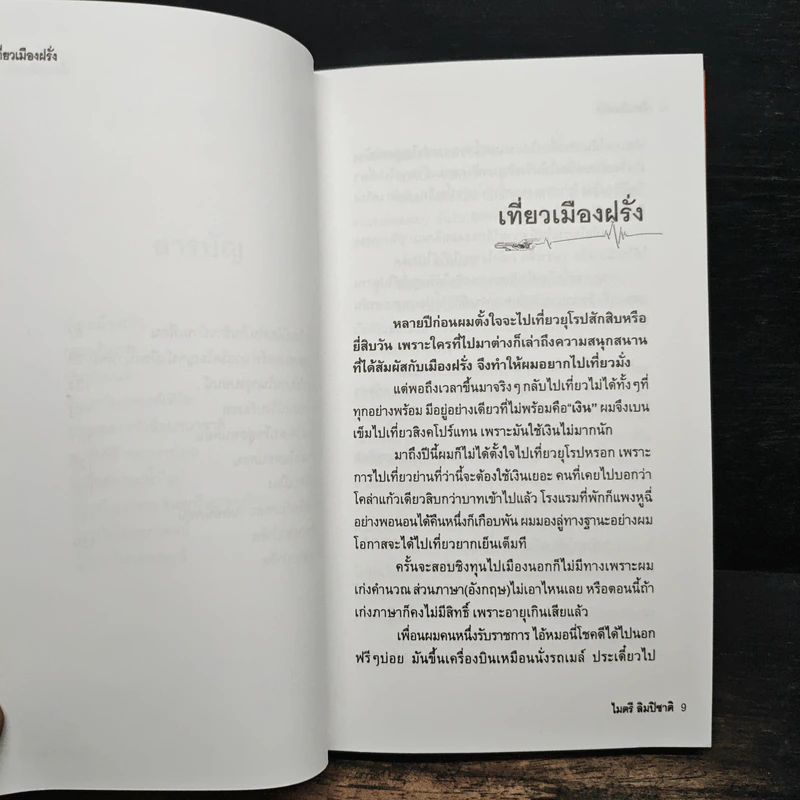 เที่ยวเมืองฝรั่ง
เที่ยวเมืองฝรั่ง
หลายปีก่อนผมตั้งใจจะไปเที่ยวยุโรปสักสิบหรือ
ยี่สิบวัน เพราะใครที่ไปมาต่างก็เล่าถึงความสนุกสนาน
ที่ได้สัมผัสกับเมืองฝรั่ง จึงทำให้ผมอยากไปเที่ยวมั่ง
แต่พอถึงเวลาขึ้นมาจริงๆ กลับไปเที่ยวไม่ได้ทั้งๆที่
ทุกอย่างพร้อม มีอยู่อย่างเดียวที่ไม่พร้อมคือ“เงิน” ผมจึงเบน
เข็มไปเที่ยวสิงคโปร์แทน เพราะมันใช้เงินไม่มากนัก
มาถึงปีนี้ผมก็ไม่ได้ตั้งใจไปเที่ยวยุโรปหรอก เพราะ
การไปเที่ยวย่านที่ว่านี้จะต้องใช้เงินเยอะ คนที่เคยไปบอกว่า
โคล่าแก้วเดียวสิบกว่าบาทเข้าไปแล้ว โรงแรมที่พักก็แพงหูฉี่
อย่างพอนอนได้คืนหนึ่งก็เกือบพัน ผมมองลู่ทางฐานะอย่างผม
โอกาสจะได้ไปเที่ยวยากเย็นเต็มที
ครั้นจะสอบชิงทุนไปเมืองนอกก็ไม่มีทางเพราะผม
เก่งคำนวณ ส่วนภาษา(อังกฤษ)ไม่เอาไหนเลย หรือตอนนี้ถ้า
เก่งภาษาก็คงไม่มีสิทธิ์ เพราะอายุเกินเสียแล้ว
เพื่อนผมคนหนึ่งรับราชการ ไอ้หมอนี่โชคดีได้ไปนอก
ฟรีๆบ่อย มันขึ้นเครื่องบินเหมือนนั่งรถเมล์ ประเดี๋ยวไป
ไมตรี ลิมปิชาติ 9